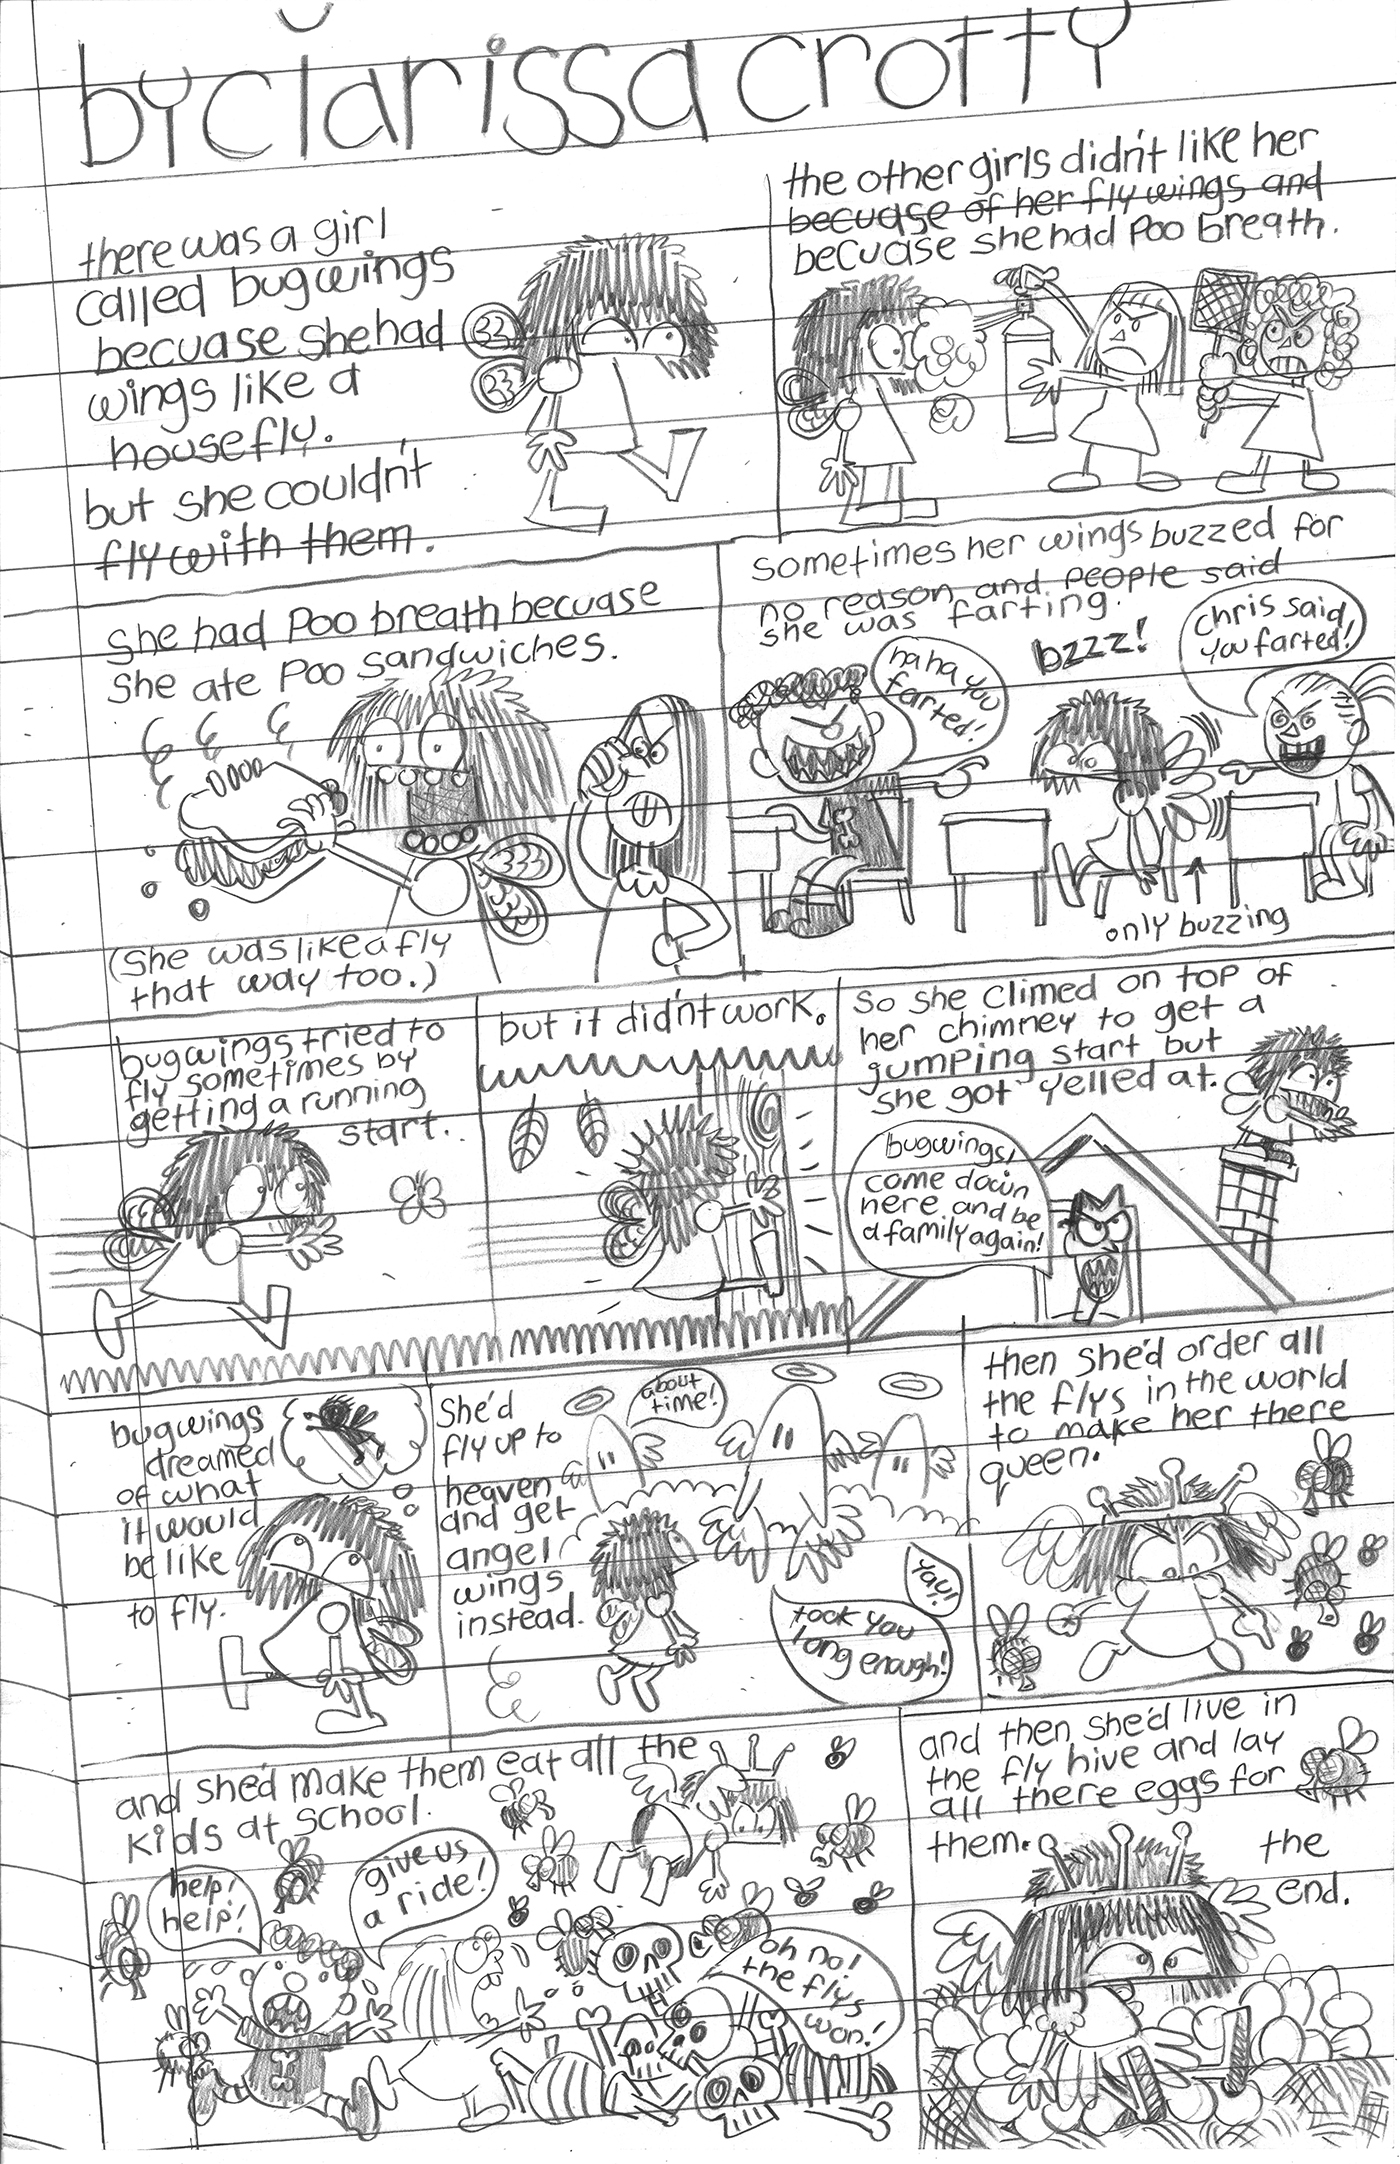 by clarissa crotty
there was a girl
called bugwings
becuase she had
wings like a
housefly.
but she couldn't
fly with them.
the other girls didn't like her
becuase of her fly wings and
becuase she had poo breath.
she had poo breath becuase
she ate poo sandwiches.
(she was like a fly
that way too.)
sometimes her wings buzzed for
no reason and people said
she was farting.
haha you
farted!
bzzz!
chris said
you farted!
only buzzing
bugwings tried to
fly sometimes by
getting a running
start.
but it didn't work.
so she climed on top of
her chimney to get a
jumping start but
she got yelled at.
bugwings!
come down
here and be
a family again!
bugwings
dreamed
of what
it would
be like
to fly.
She'd
fly up to
heaven
and get
angel
wings
instead.
about
time!
yay!
took you
long enough!
then she'd order all
the flys in the world
to make her there
queen.
and she'd make them eat all the
kids at school.
help!
help!
give us
a ride!
oh no!
the flys
won!
and then she'd live in
the fly hive and lay
all there eggs for
them.
the
end.